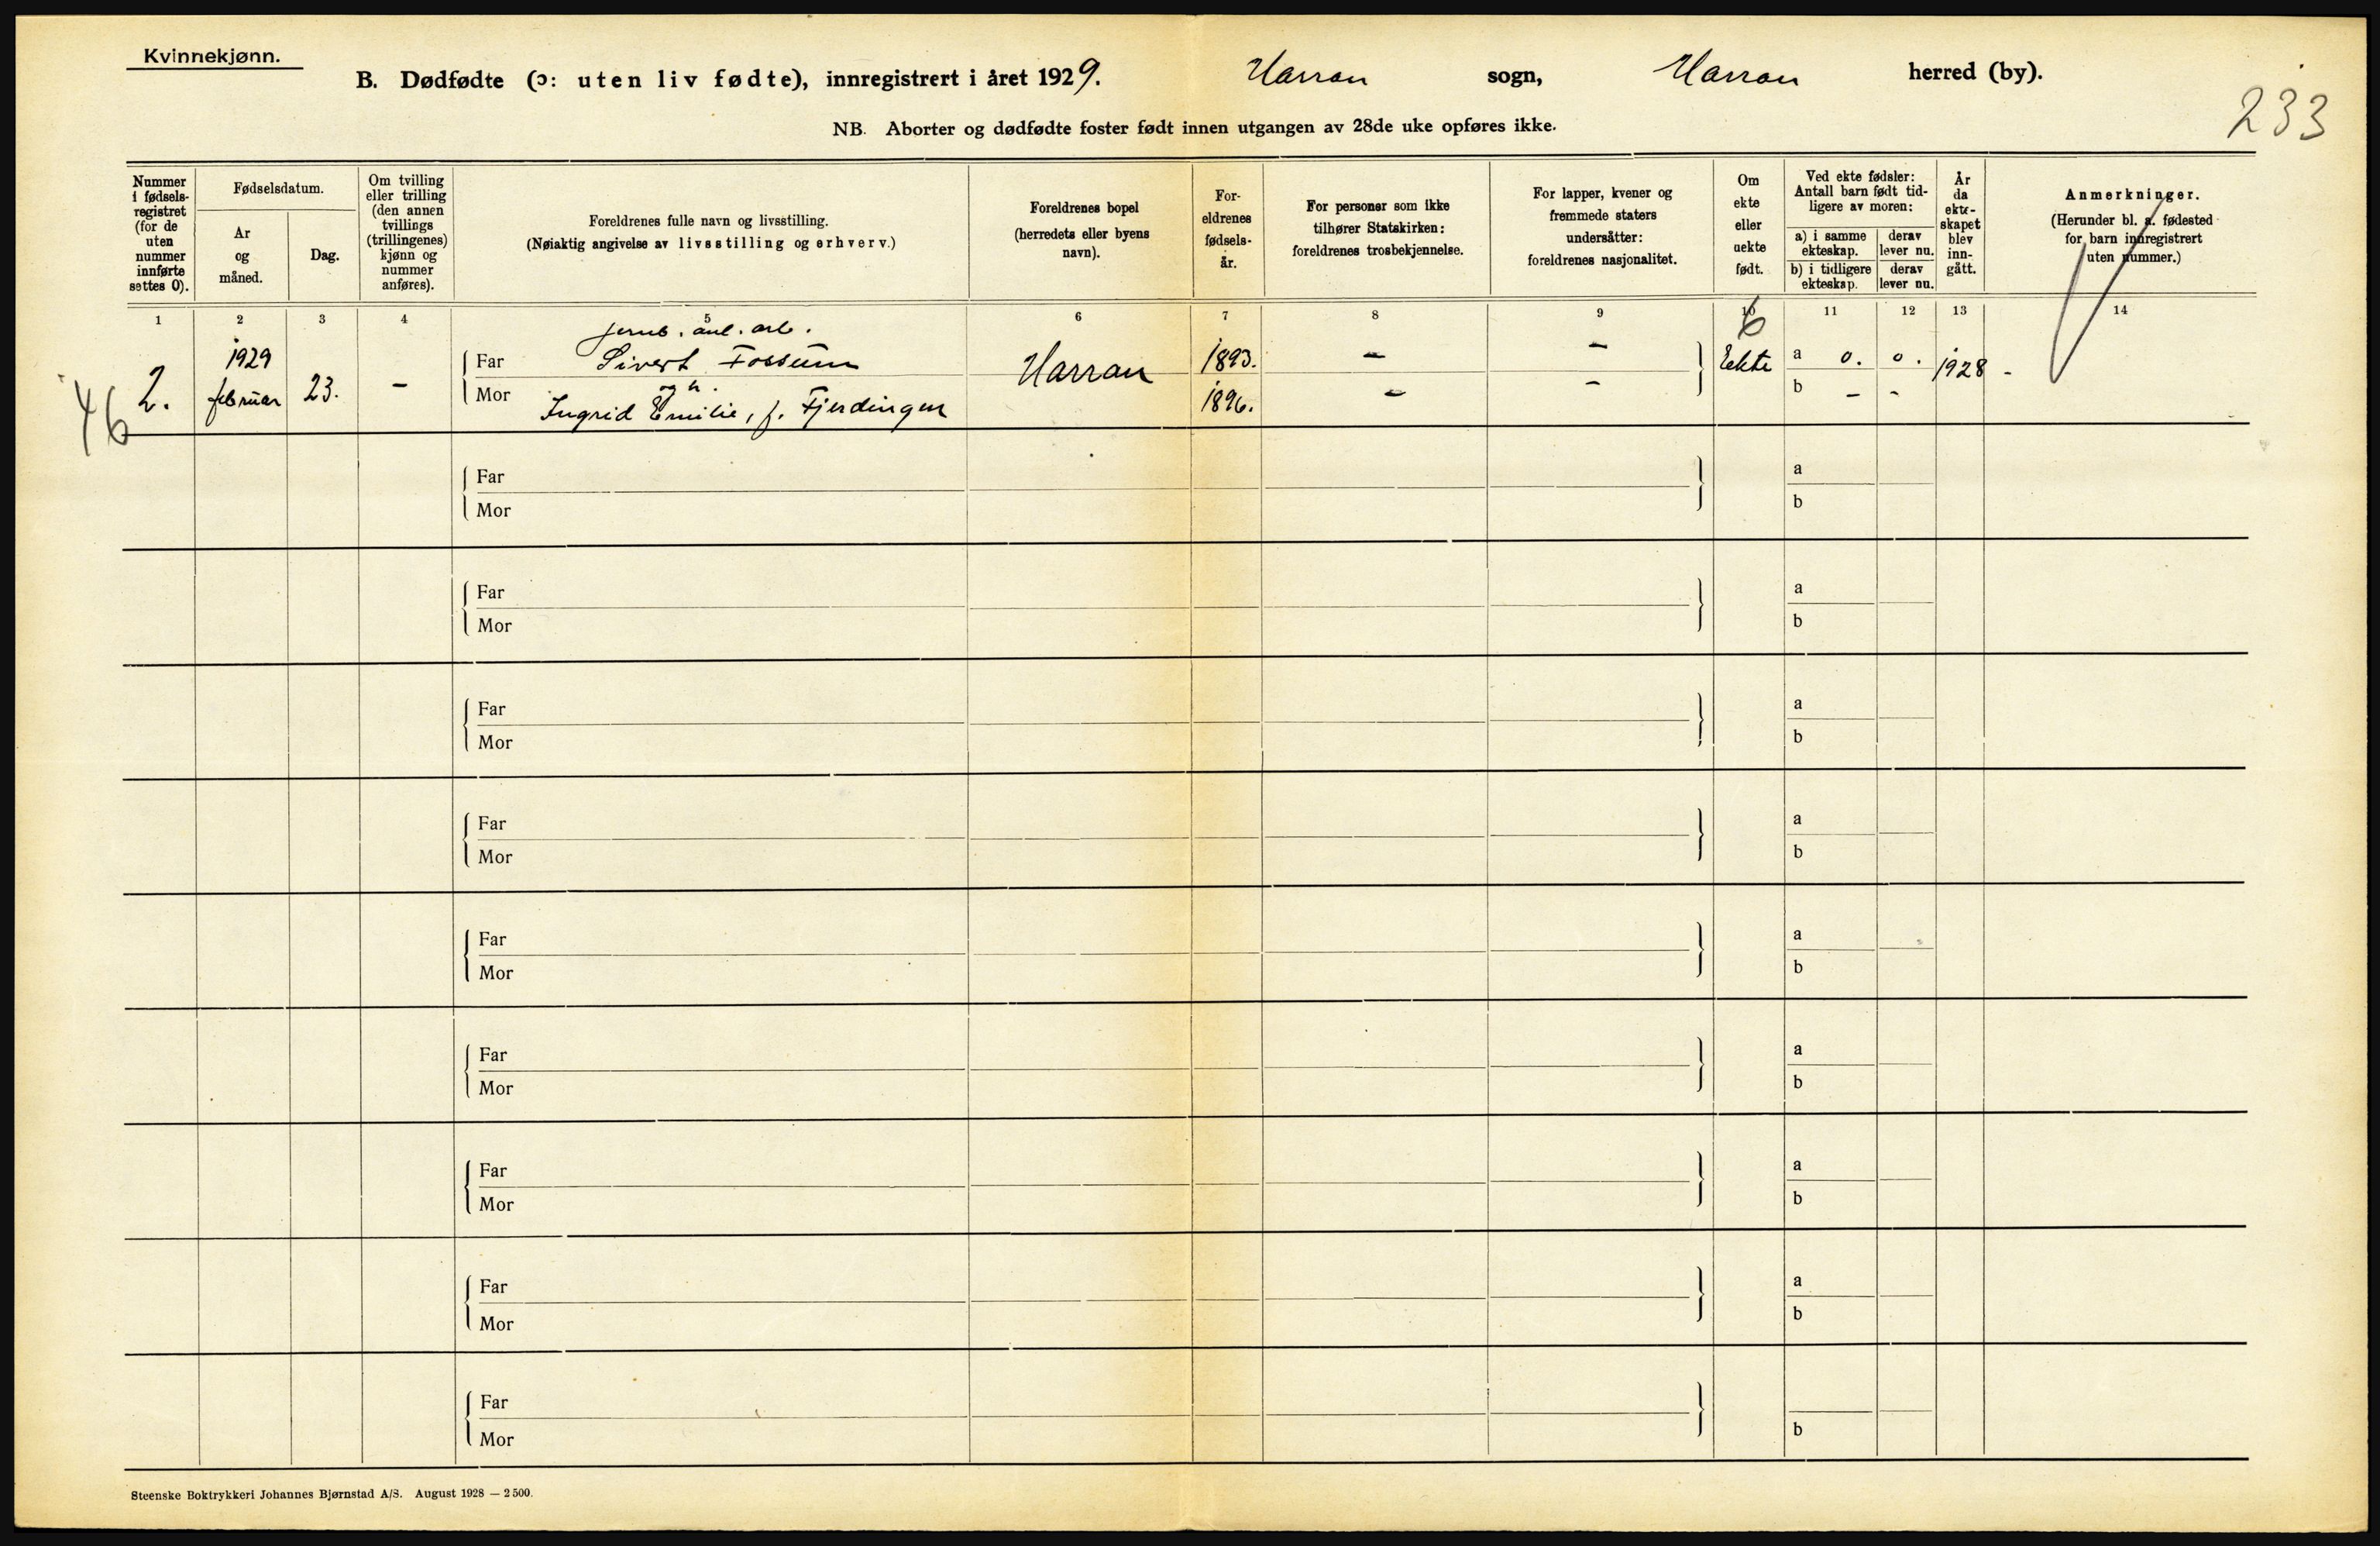 Kvinnekjønn.
B. Dødfødte (ɔ: uten liv fødte), innregistrert i året 1929. Harran sogn, Harran herred (by).
233
NB. Aborter og dødfødte foster født innen utgangen av 28de uke opføres ikke.
Nummer
i fødsels-
registret
(for de
uten
nummer
innførte
settes 0).
Fødselsdatum.
År
og
måned.
Dag.
Om tvilling
eller trilling
(den annen
tvillings
(trillingenes)
kjønn og
nummer
anføres).
Foreldrenes fulle navn og livsstilling.
(Nøiaktig angivelse av livsstilling og erhverv.)
Foreldrenes bopel
(herredets eller byens
navn).
For-
eldrenes
fødsels-
år.
For personer som ikke
tilhører Statskirken:
foreldrenes trosbekjennelse.
For lapper, kvener og
fremmede staters
undersåtter:
foreldrenes nasjonalitet.
Om
ekte
eller
uekte
født.
Ved ekte fødsler:
Antall barn født tid-
ligere av moren:
a) i samme
ekteskap.
derav
lever nu.
b) i tidligere
ekteskap.
derav
lever nu.
År
da
ekte-
skapet
blev
inn-
gått.
Anmerkninger.
(Herunder bl. a. fødested
for barn innregistrert
uten nummer.)
1 2 3 4 5 6 7 8 9 10 11 12 13 14
6
jernb. anl. arb.
1929 Far Sivert Fossum 1893. – –
46 2. februar 23. – og h. Harran Ekte a 0. 0. 1928 -
Mor Ingrid Emilie, f. Fjerdingen 1896. – – b – -
Far a
Mor b
Far a
Mor b
Far a
Mor b
Far a
Mor b
Far a
Mor b
Far a
Mor b
Far a
Mor b
Far a
Mor b
Far
Mor b
Steenske Boktrykkeri Johannes Bjørnstad A/S. August 1928 — 2500.